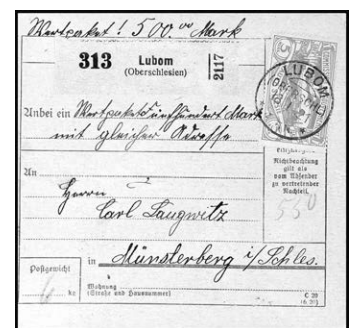 Wertpaket! 500.00 Mark
313
Lubom
(Oberschlesien)
2117
5
LUBOM
Anbei ein Wertpaket Fünfhundert Mark
mit gleicher Adresse
Nichtbeachtung
gilt als
vom Absender
zu vertretender
Nachteil.
An
Herrn
Carl Langwitz
550
in Münsterberg i/Schles.
Postgewicht
kg
Wohnung
(Straße und Hausnummer)
C 20